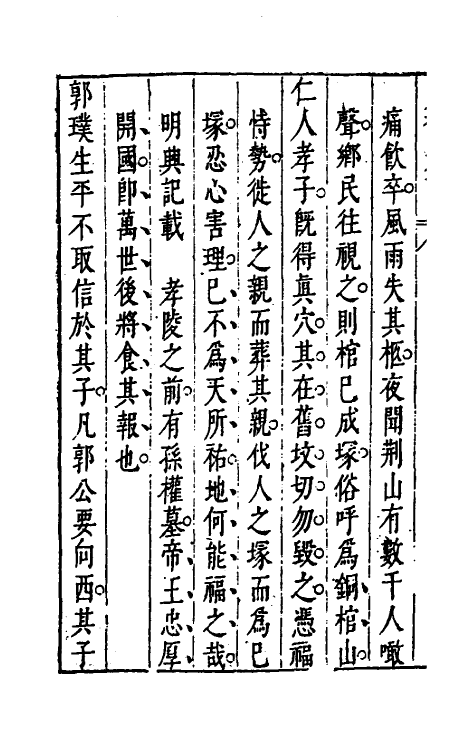 痛飲卒風雨失其柩夜聞荆山有數千人噉
聲鄉民往視之則棺已成塚俗呼爲銅棺山
仁人孝子旣得眞穴其在舊坟切勿毀之憑福
恃勢徙人之親而葬其親伐人之塚而爲已
塚忍心害理已不爲天所祐地何能福之哉
明典記載　孝陵之前有孫權墓帝王忠厚
開國卽萬世後將食其報也
郭璞生平不取信於其子凡郭公要向西其子